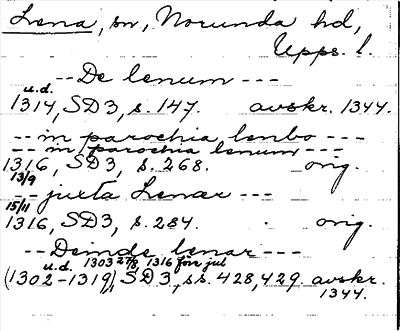 Lena, sn, Norunda hd,
Upps. l.
-- De lenum ---
u.d.
1314, SD3, s. 147. avskr. 1344.
-- in parochia lenbo ---
-- in parochia lenum ---
1316, SD3, s. 268. orig.
13/9
-- juxta Lenær ---
15/11
1316, SD3, s. 284. orig.
-- Deinde lenar ---
u.d. 1303 27/8, 1316 före jul
(1302-1319), SD3, ss. 428, 429. avskr.
1344.